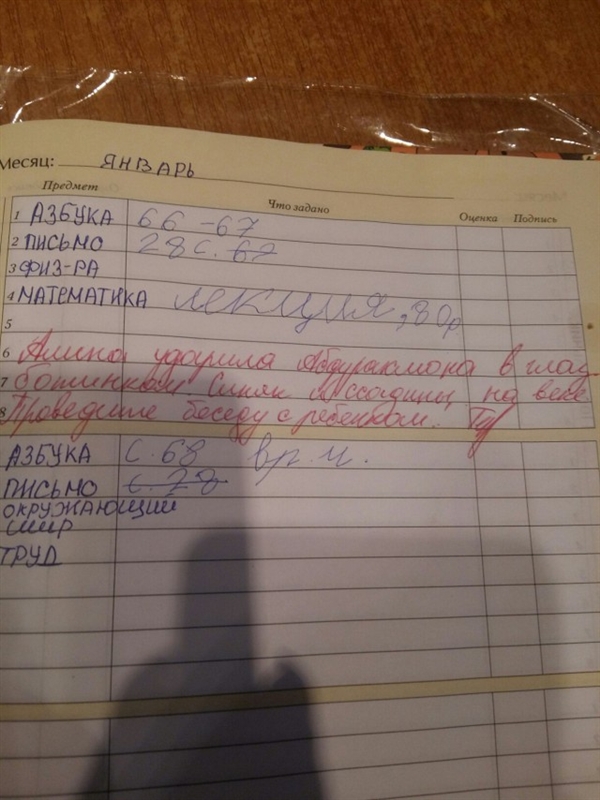 Месяц: ЯНВАРЬ
Предмет Что задано Оценка Подпись
1 АЗБУКА 66-67
2 ПИСЬМО 28 с. 67
3 ФИЗ-РА
4 МАТЕМАТИКА лекция, 80р.
5
6 Амина ударила Абдурахмона в глаз
7 ботинком. Синяк и ссадины на веке.
8 Проведите беседу с ребенком.
АЗБУКА с. 68 вр. и.
ПИСЬМО с. 28
ОКРУЖАЮЩИЙ
МИР
ТРУД